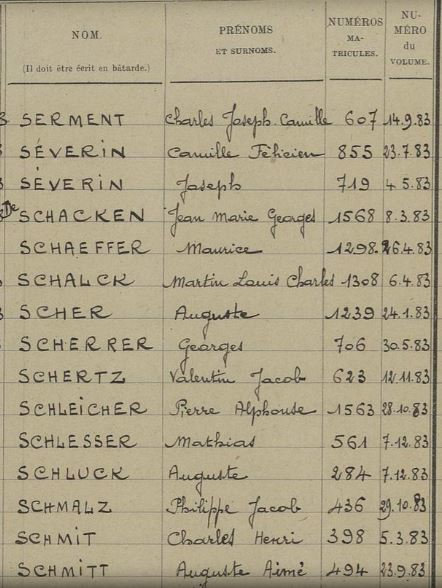 NOM. PRÉNOMS NUMÉROS NU-
(Il doit être écrit en bâtarde.) ET SURNOMS. MA- MÉRO
TRICULES. du
VOLUME.
SERMENT Charles Joseph Camille 607 14.9.83
SÉVERIN Camille Félicien 855 23.7.83
SÉVERIN Joseph 719 4.5.83
De SCHACKEN Jean Marie Georges 1568 8.3.83
SCHAEFFER Maurice 1298. 26.4.83
SCHALCK Martin Louis Charles 1308 6.4.83
SCHER Auguste 1239 24.1.83
SCHERRER Georges 706 30.5.83
SCHERTZ Valentin Jacob 623 12.11.83
SCHLEICHER Pierre Alphonse 1563 28.10.83
SCHLESSER Mathias 561 7.12.83
SCHLUCK Auguste 284 7.12.83
SCHMALZ Philippe Jacob 436 29.10.83
SCHMIT Charles Henri 398 5.3.83
SCHMITT Auguste Aimé 494 23.9.83